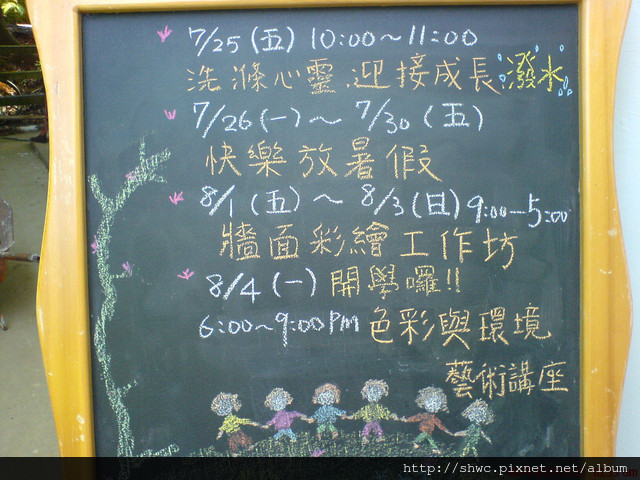 7/25(五) 10:00~11:00
洗滌心靈.迎接成長 潑水
7/26(一)~ 7/30(五)
快樂放暑假
8/1(五)~ 8/3(日) 9:00-5:00
牆面彩繪工作坊
8/4(一) 開學囉!!
6:00~9:00PM 色彩與環境
藝術講座
http://shwc.pixnet.net/album